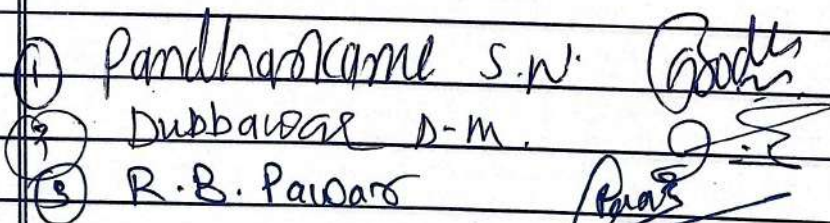 ① Pandharkame S.N.
② Dubbawar D-M.
③ R.B. Pawar